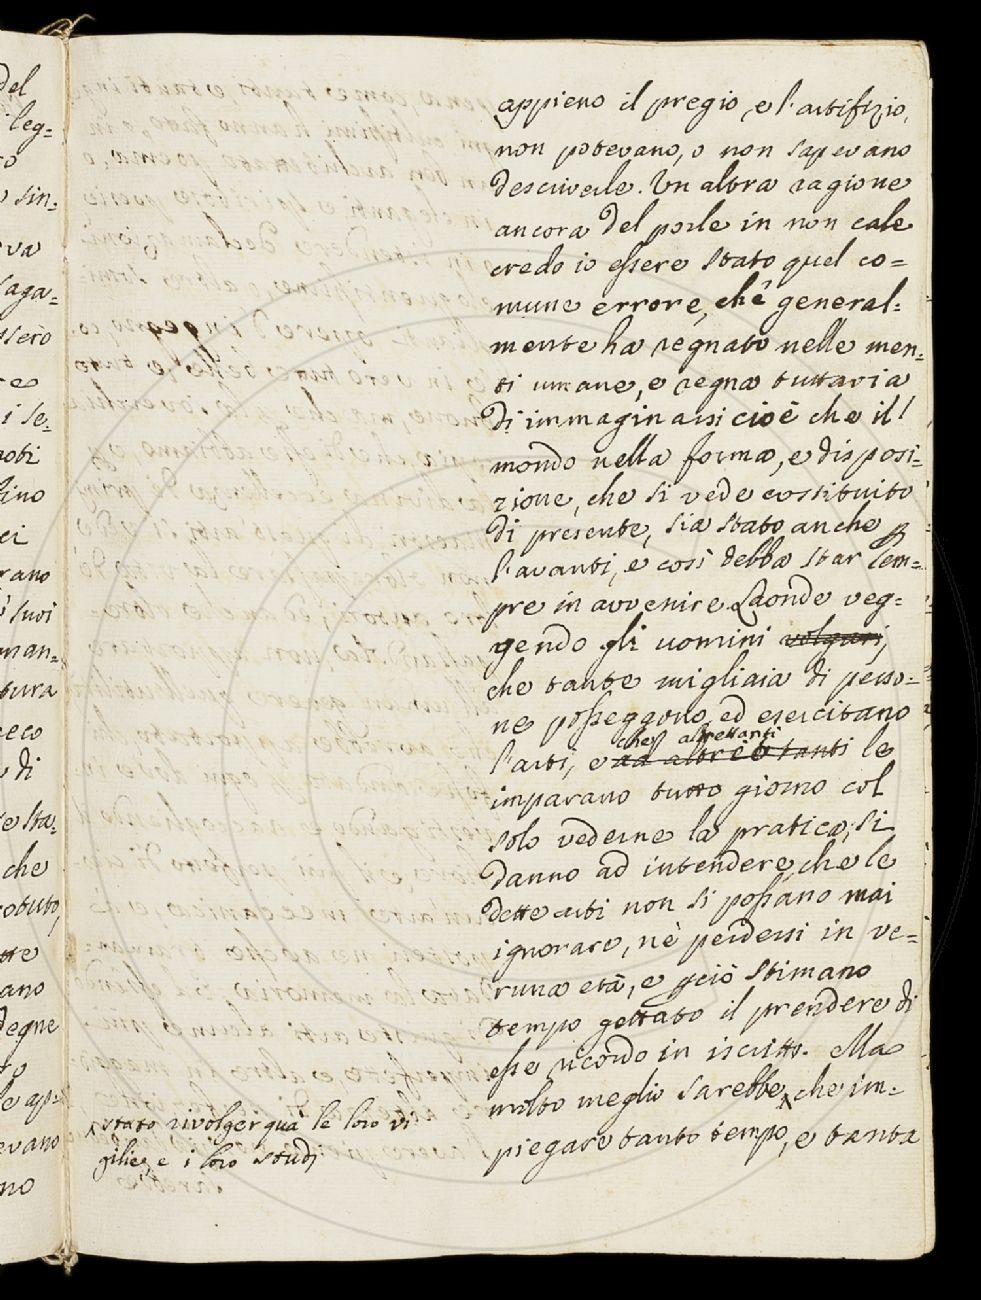 del
leg=
sin=
va
saga=
ssero
re
i se=
nobi
fino
ei
rano
i suoi
man=
tura
eco
di
e sta=
che
potuto,
tte
ano
degne
to
le ap=
evano
no
appieno il pregio, e l'artifizio,
non potevano, o non sapevano
descriverle. Un altra ragione
ancora del porle in non cale
credo io essere stato quel co=
mune errore, chè general=
mente ha regnato nelle men=
ti umane, e regna tuttavia
di immaginarsi cioè che il
mondo nella forma, e disposi=
zione, che si vede costituito
di presente, sia stato anche p
l'avanti, e così debba star sem=
pre in avvenire. Laonde veg=
gendo gli uomini volgari,
che tante migliaia di perso=
ne posseggono, ed esercitano
che altrettanti
l'arti, e ad altre tanti le
imparano tutto giorno col
solo vederne la pratica; si
danno ad intendere che le
dette arti non si possano mai
ignorare, nè perdersi in ve=
runa età, e pciò stimano
tempo gettato il prendere di
esse ricordo in iscritto. Ma
molto meglio sarebbe ^ che im=
piegare tanto tempo, e tanta
^ stato rivolger quà le loro vi
gilie, e i loro studj